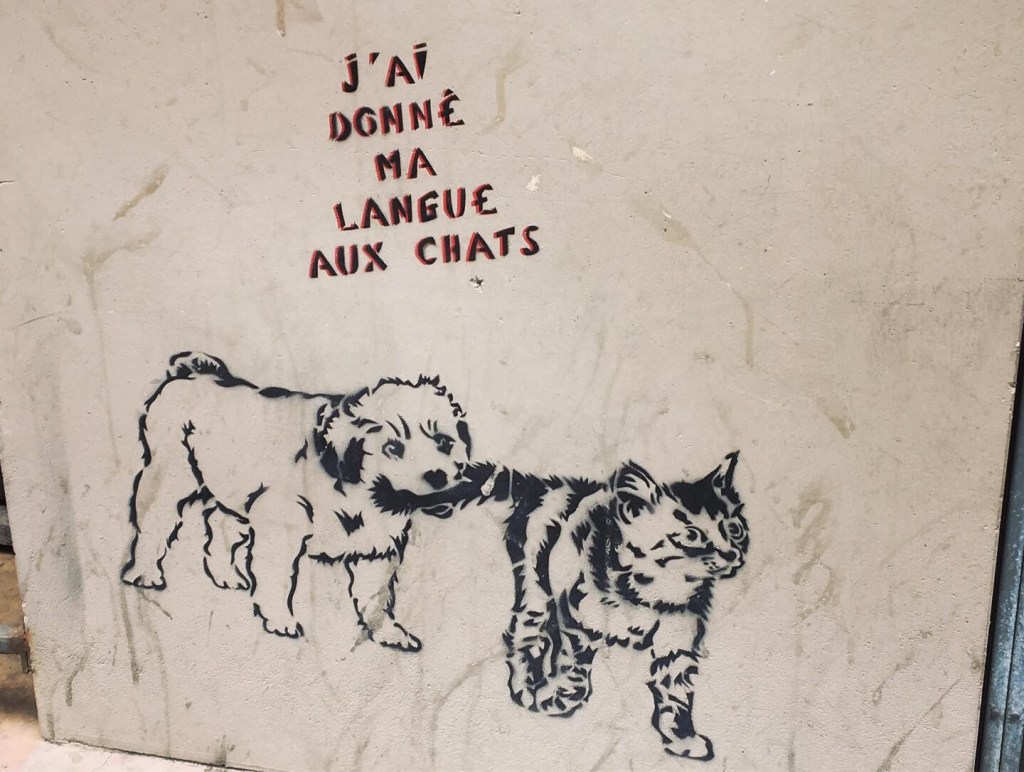 J'AI
DONNÉ
MA
LANGUE
AUX CHATS